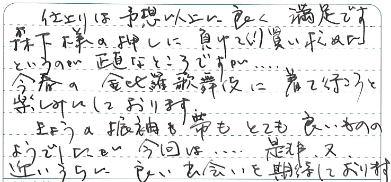 仕上りは予想以上に良く 満足です
森下様の押しに負けて(?)買い求めた
というのが正直なところですが……
今春の金比羅歌舞伎に着て行こうと
楽しみにしております
上ようの振袖も帯もとても良いものの
ようでしたが 今回は…… 是非又
近いうちに良い出会いを期待しております